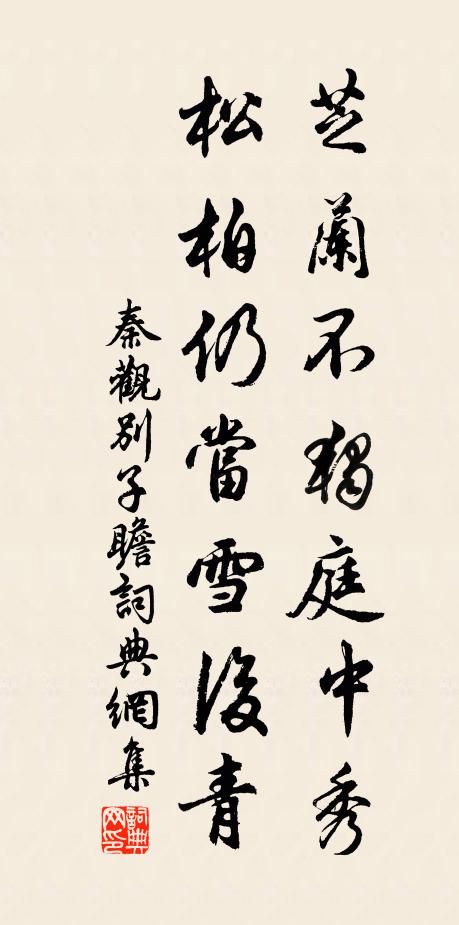 芝蘭不獨庭中秀
松柏仍當雪後青
秦觀別子瞻詞典網集
詞典網印